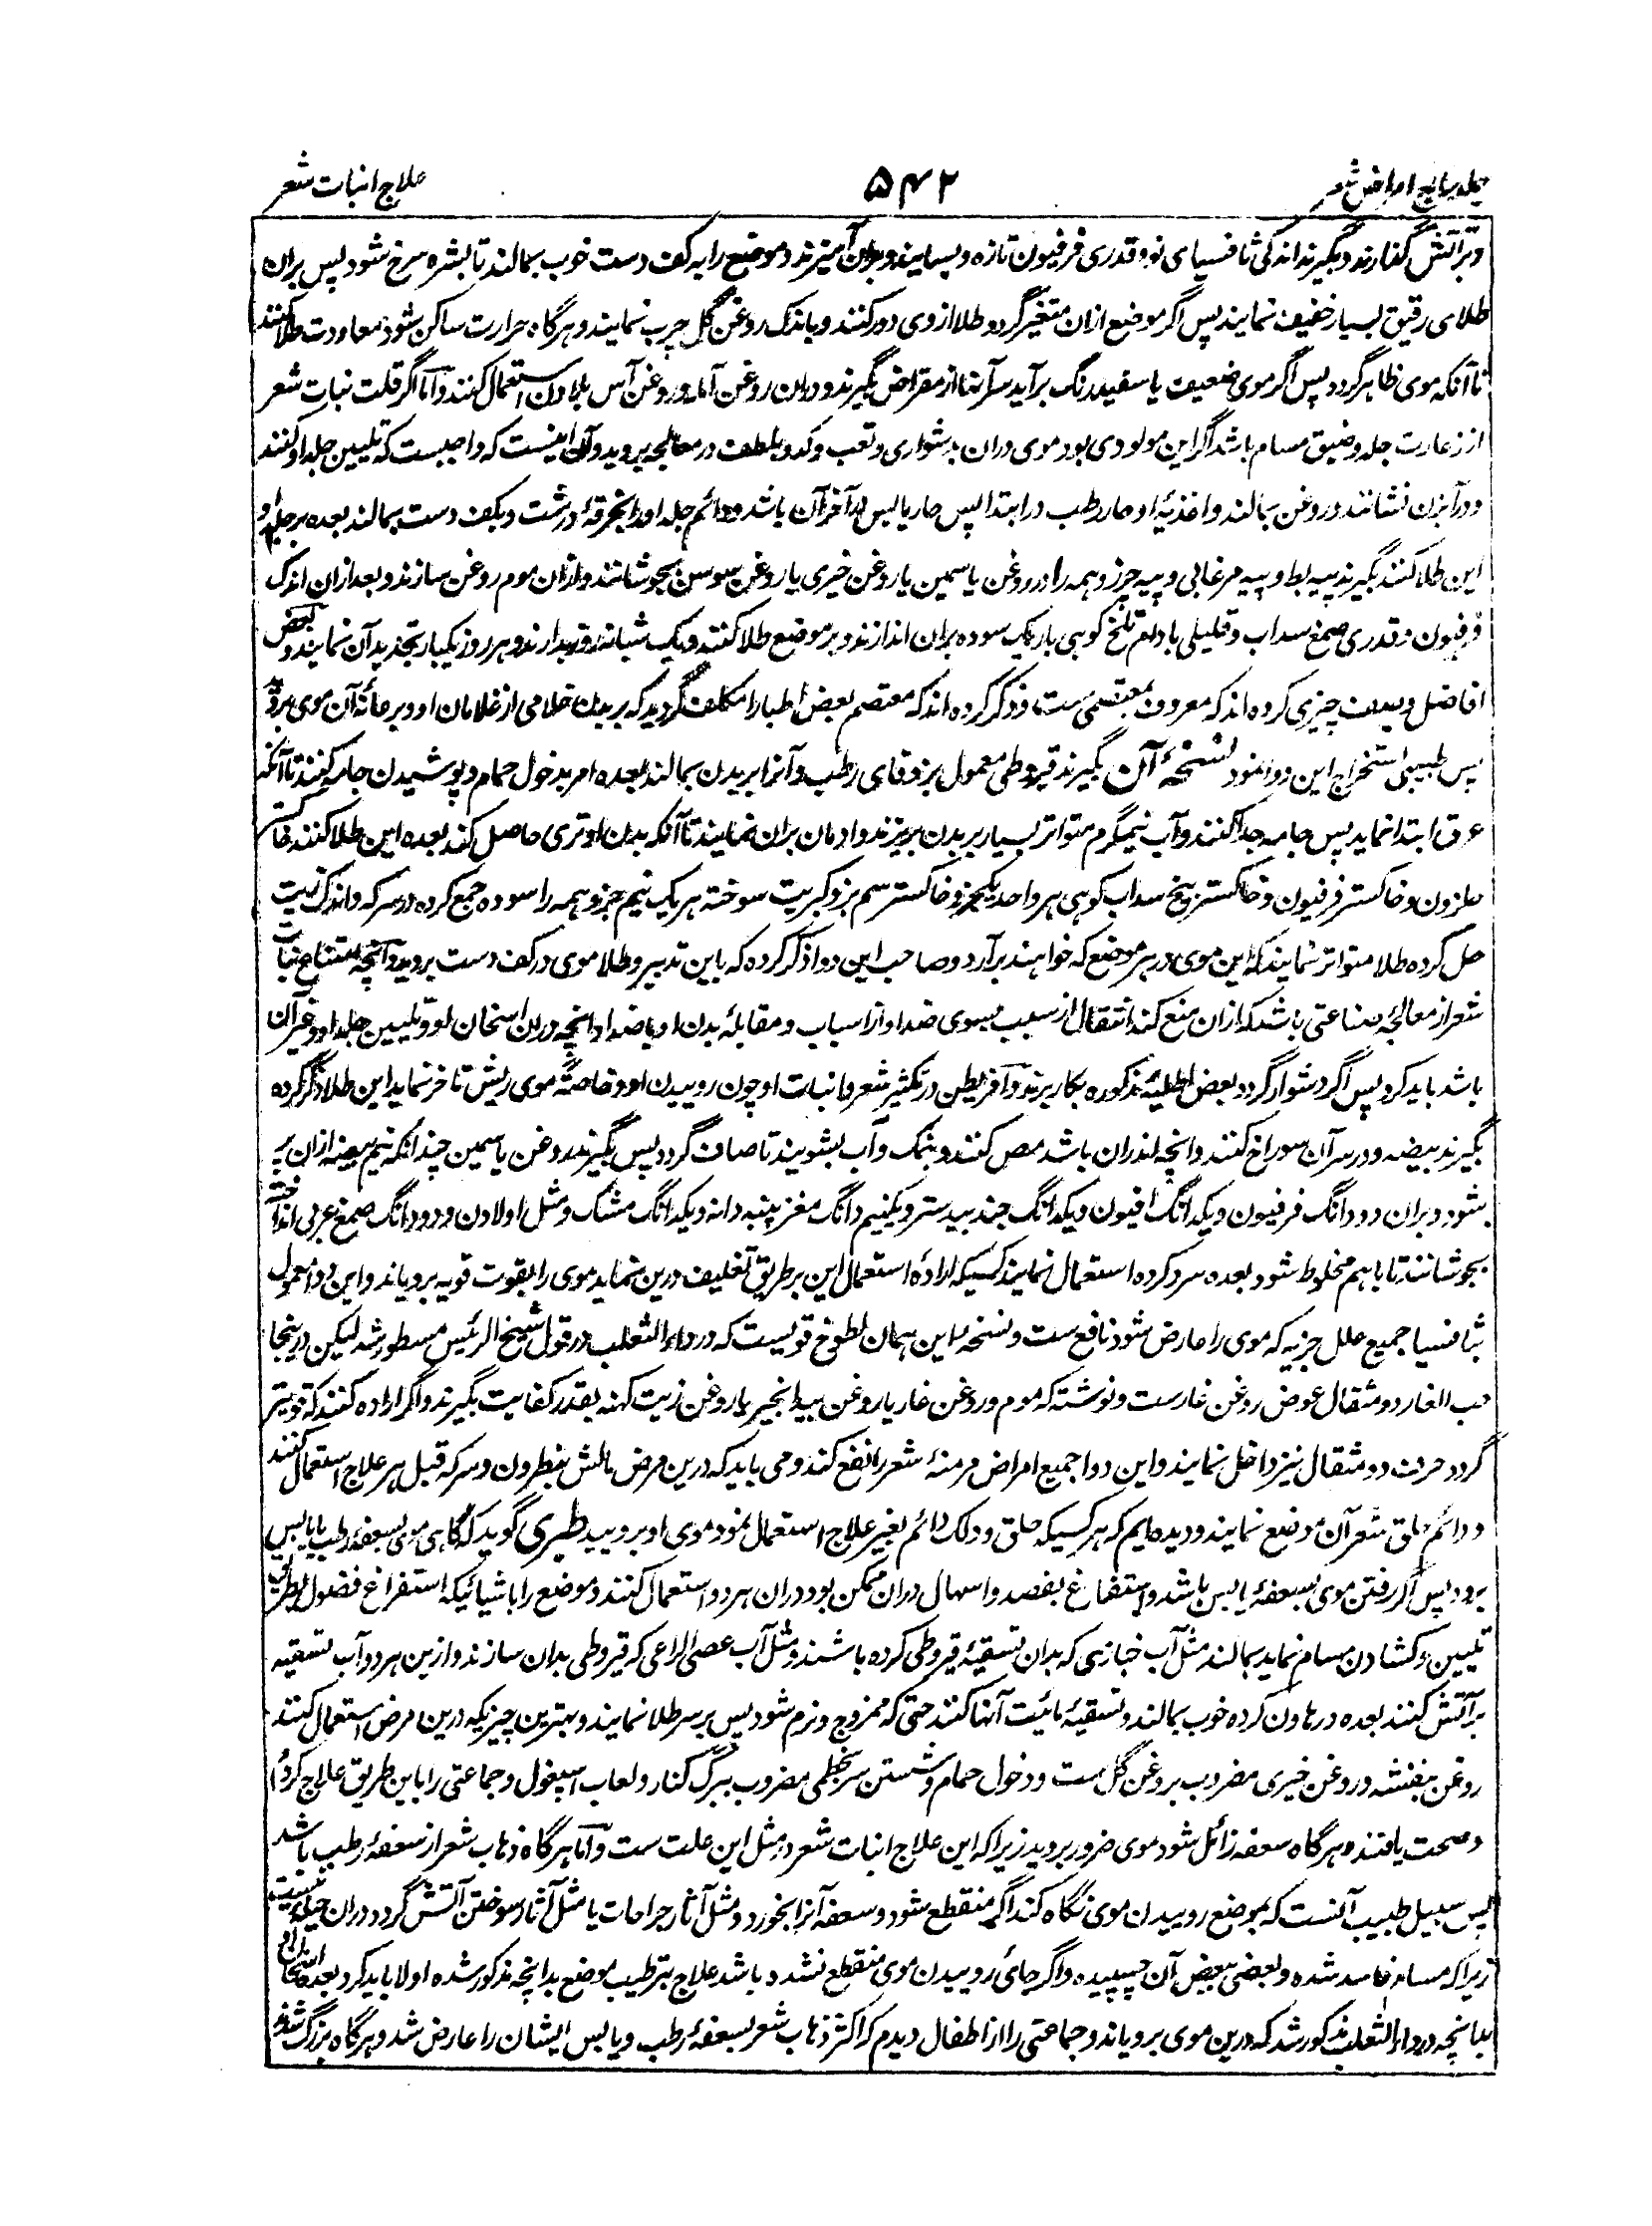 جلد رابع امراض شعر
۵۴۲
علاج انبات شعر
و بر آتش گذارند و بگیرند اندکی ثافسیای نو و قدری فرفیون تازه و بسایند و بران آمیزند و موضع را به کف دست خوب بمالند تا بشره سرخ شود پس بران
طلای رقیق بسیار خفیف نمایند پس اگر موضع ازان متغیر گردد طلا از وی دور کنند و باندک روغن گل چرب نمایند و هرگاه حرارت ساکن شود معاودت طلا کنند
تا آنکه موی ظاهر گردد پس اگر موی ضعیف یا سفید رنگ برآید سر آنها از مقراض بگیرند و دران روغن آمله و روغن آس بلادن استعمال کنند و اما اگر قلت نبات شعر
از زعارت جلد و ضیق مسام باشد اگر این مولودی بود موی دران بدشواری و تعب و کد و بلطف در معالجه بروید و آن اینست که واجبست که تلیین جلد او کنند
و در آبزن نشانند و روغن بمالند و اغذیهٔ او حار رطب در ابتدا پس حار یابس در آخر آن باشد و دائم جلد او را بخرقهٔ درشت و بکف دست بمالند بعده بر جلد او
این طلا کنند بگیرند پیه بط و پیه مرغابی و پیه خرز و همه را در روغن یاسمین یا روغن خیری یا روغن سوسن بجوشانند و ازان موم روغن سازند و بعد ازان اندک
فرفیون و قدری صمغ سداب و قلیلی بادام تلخ کوهی باریک سوده بران اندازند و بر موضع طلا کنند و یک شبانه روز بدارند و هر روز یکبار تجدید آن نمایند و بعض
افاضل وصف چیزی کرده اند که معروف بمعتصمی ست و ذکر کرده اند که معتصم بعض اطبا را مکلف گردید که بر بدن غلامی از غلامان او و بر عانهٔ آن موی بروید
پس طبیبی استخراج این دوا نمود نسخهٔ آن بگیرند قیروطی معمول بزوفای رطب و آنرا بر بدن بمالند بعده امر بدخول حمام و پوشیدن جامه کنند تا آنکه
عرق ابتدا نماید پس جامه جدا کنند و آب نیمگرم متواتر بسیار بر بدن بریزند و ادمان بران نمایند تا آنکه بدن او تری حاصل کند بعده این طلا کنند خاکستر
حلزون و خاکستر فرفیون و خاکستر بیخ سداب کوهی هر واحد یکجزو خاکستر سم بز و کبریت سوخته هر یک نیم جزو همه را سوده جمع کرده در سرکه و اندک زیت
حل کرده طلا متواتر نمایند که این موی در هر موضع که خواهند برآرد و صاحب این دوا ذکر کرده که باین تدبیر و طلا موی در کف دست بروید و آنچه امتناع نبات
شعر از معالجهٔ صناعتی باشد که ازان منع کند انتقال از سبب بسوی ضد او از اسباب و مقابلهٔ بدن او باضداد آنچه دران استخان او و تلیین جلد او و غیر آن
باشد باید کرد پس اگر دشوار گردد بعض اطلیهٔ مذکوره بکار برند و آقریطن در تکثیر شعر و انبات او چون روییدن او و خاصتهً موی ریش تاخر نماید این طلا ذکر کرده
بگیرند بیضه و در سر آن سوراخ کنند و آنچه اندران باشد مص کنند و بنمک و آب بشویند تا صاف گردد پس بگیرند روغن یاسمین چندانکه نیم بیضه ازان پر
شود و بران دو دانگ فرفیون و یکدانگ افیون و یکدانگ جند بیدستر و یکنیم دانگ مغز پنبه دانه و یکدانگ مشک و مثل او لادن و دو دانگ صمغ عربی انداخته
بجوشانند تا باهم مخلوط شود بعده سرد کرده استعمال نمایند کسیکه ارادهٔ استعمال این بر طریق تغلیف درین نماید موی را بقوت قویه برویاند و این دوا معمول
بثافسیا جمیع علل جزیه که موی را عارض شود نافع ست و نسخهٔ این همان لطوخ قویست که در داء الثعلب در قول شیخ الرئیس مسطور شد لیکن درینجا
حب الغار دو مثقال عوض روغن غارست و نوشته که موم و روغن غار یا روغن بید انجیر یا روغن زیت کهنه بقدر کفایت بگیرند و اگر اراده کنند که قویتر
گردد حرف دو مثقال نیز داخل نمایند و این دوا جمیع امراض مزمنهٔ شعر را نفع کند و می باید که درین مرض مالش بنطرون و سرکه قبل هر علاج استعمال کنند
و دائم حلق شعر آن موضع نمایند و دیده ایم که هر کسیکه حلق و دلک دائم بغیر علاج استعمال نمود موی او بروییید طبری گوید که گاهی موی بسعفهٔ رطب یا یابس
برود پس اگر رفتن موی بسعفهٔ یابس باشد و استفراغ بفصد و اسهال دران ممکن بود دران هر دو استعمال کنند و موضع را باشیائیکه استفراغ فضول بطریق
تلیین و کشادن مسام نماید بمالند مثل آب خبازی که بدان تسقیهٔ قیروطی کرده باشند و مثل آب عصی الراعی که قیروطی بدان سازند و ازین هر دو آب تسقیه
بر آتش کنند بعده در هاون کرده خوب بمالند و تسقیهٔ مائیت آنها کنند حتی که ممزوج و نرم شود پس بر سر طلا نمایند و بهترین چیزیکه درین مرض استعمال کنند
روغن بنفشه و روغن خیری مضروب بروغن گل ست و دخول حمام و شستن سر بخطمی مضروب ببرگ کنار و لعاب اسپغول و جماعتی را باین طریق علاج کردم
و صحت یافتند و هرگاه سعفه زائل شود موی ضرور بروید زیرا که این علاج انبات شعر در مثل این علت ست و اما هرگاه ذهاب شعر از سعفهٔ رطب باشد
پس سبیل طبیب آنست که بموضع روییدن موی نگاه کند اگر منقطع شود و سعفه آنرا بخورد و مثل آثار جراحات یا مثل آثار سوختن آتش گردد دران حیله نیست
زیرا که مسام فاسد شده و بعضی ببعض آن چسپیده و اگر جای روییدن موی منقطع نشده باشد علاج بترطیب موضع بدانچه مذکور شده اولا باید کرد بعده
بدانچه در داء الثعلب مذکور شد که درین موی برویاند و جماعتی را از اطفال دیدم که اکثر ذهاب شعر بسعفهٔ رطب و یابس ایشان را عارض شد و هرگاه بزرگ شدند